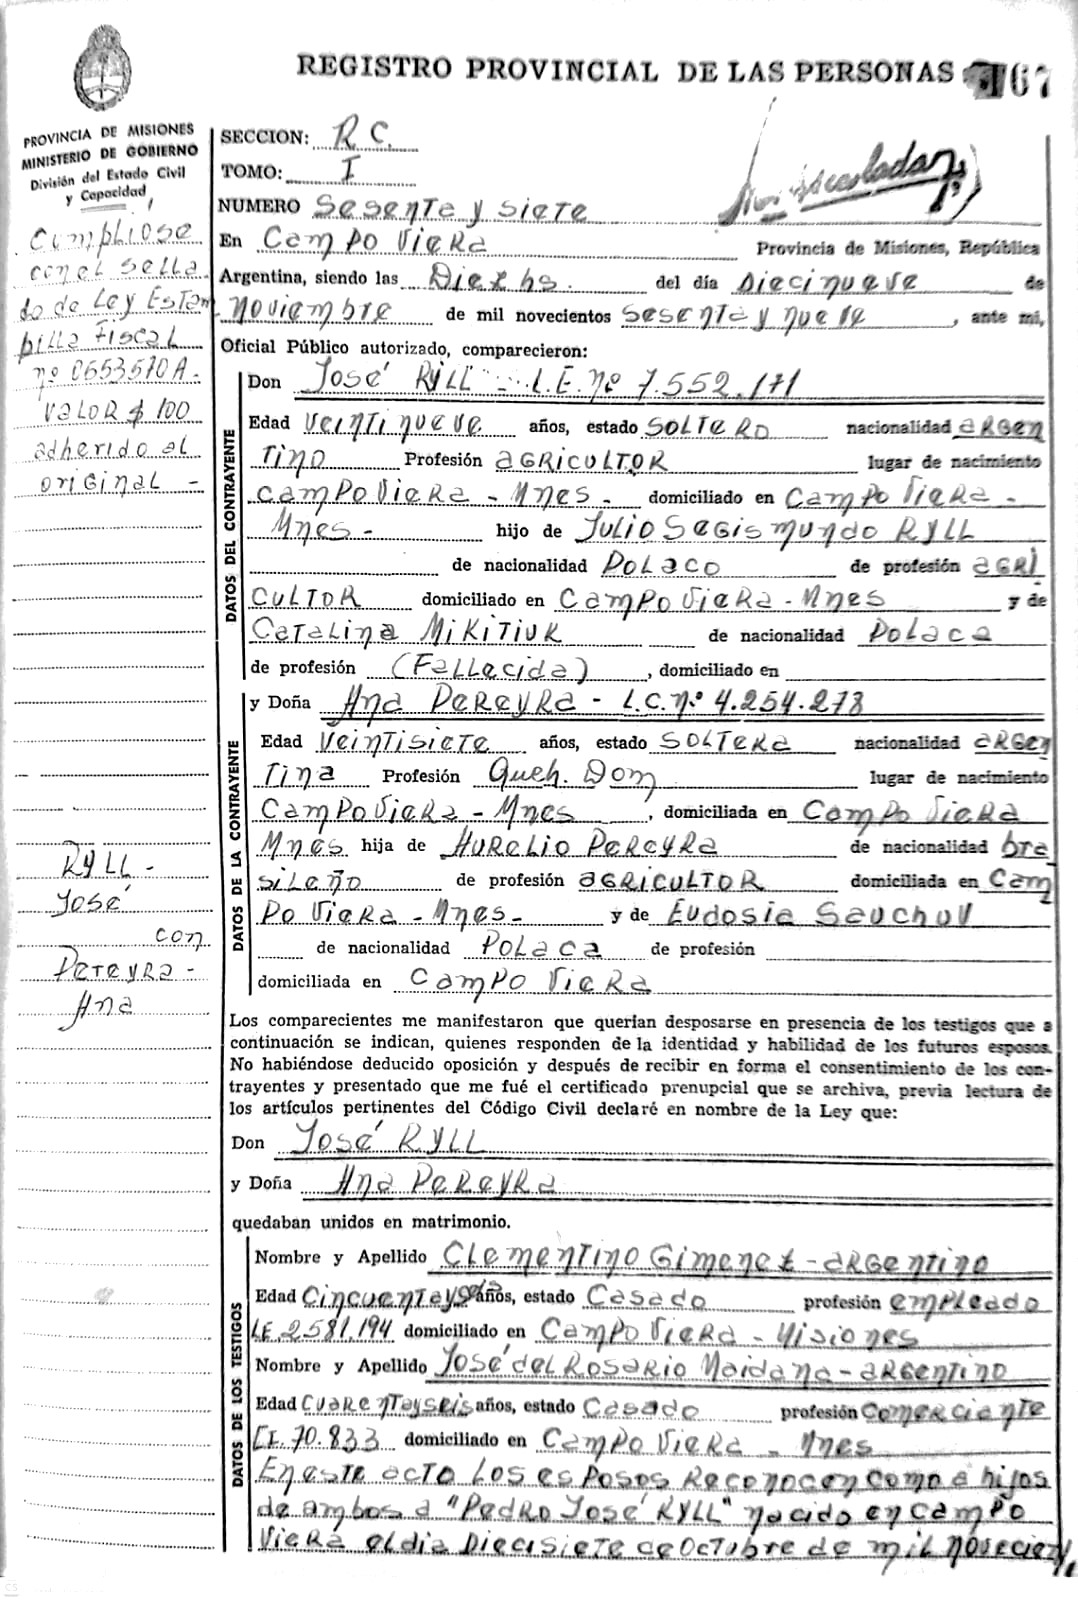 REGISTRO PROVINCIAL DE LAS PERSONAS 167
PROVINCIA DE MISIONES
MINISTERIO DE GOBIERNO
División del Estado Civil
y Capacidad
Cumpliose
con el sella
do de Ley Estam
pilla Fiscal
nº 0653570A.
VALOR $ 100
adherido al
original -
RYLL -
José
con
Pereyra -
Ana
SECCION: R C.
TOMO: I
NUMERO Sesenta y siete
En Campo Viera Provincia de Misiones, República
Argentina, siendo las Diez hs. del día Diecinueve de
Noviembre de mil novecientos sesenta y nueve, ante mi,
Oficial Público autorizado, comparecieron:
DATOS DEL CONTRAYENTE
Don José RYLL - L.E. nº 7.552.171
Edad Veintinueve años, estado SOLTERO nacionalidad argen
tino Profesión AGRICULTOR lugar de nacimiento
Campo Viera - Mnes - domiciliado en Campo Viera -
Mnes - hijo de Julio Segismundo RYLL
de nacionalidad Polaco de profesión agri
cultor domiciliado en Campo Viera - Mnes y de
Catalina MIKITIUK de nacionalidad Polaca
de profesión (Fallecida), domiciliado en
DATOS DE LA CONTRAYENTE
y Doña Ana Pereyra - L.C. nº 4.254.273
Edad Veintisiete años, estado SOLTERA nacionalidad argen
tina Profesión Queh. Dom lugar de nacimiento
Campo Viera - Mnes, domiciliada en Campo Viera
Mnes hija de Aurelio Pereyra de nacionalidad bra
sileño de profesión AGRICULTOR domiciliada en Cam
po Viera - Mnes - y de Eudosia Sauchuv
de nacionalidad Polaca de profesión
domiciliada en Campo Viera
Los comparecientes me manifestaron que querían desposarse en presencia de los testigos que a
continuación se indican, quienes responden de la identidad y habilidad de los futuros esposos.
No habiéndose deducido oposición y después de recibir en forma el consentimiento de los con-
trayentes y presentado que me fué el certificado prenupcial que se archiva, previa lectura de
los artículos pertinentes del Código Civil declaré en nombre de la Ley que:
Don José RYLL
y Doña Ana Pereyra
quedaban unidos en matrimonio.
DATOS DE LOS TESTIGOS
Nombre y Apellido Clementino Gimenez - argentino
Edad Cincuenta y años, estado Casado profesión empleado
LE. 2581.194 domiciliado en Campo Viera - Misiones
Nombre y Apellido José del Rosario Maidana - argentino
Edad Cuarenta y seis años, estado Casado profesión Comerciante
CI. 70.833 domiciliado en Campo Viera - Mnes
En este acto los esposos reconocen como a hijos
de ambos a "Pedro José RYLL" nacido en Campo
Viera el dia Diecisiete de Octubre de mil novecien